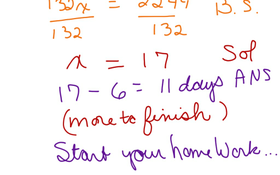 132x = 2244 D.S.
132 132
x = 17 Sol
17 - 6 = 11 days ANS
(more to finish)
Start your homework...